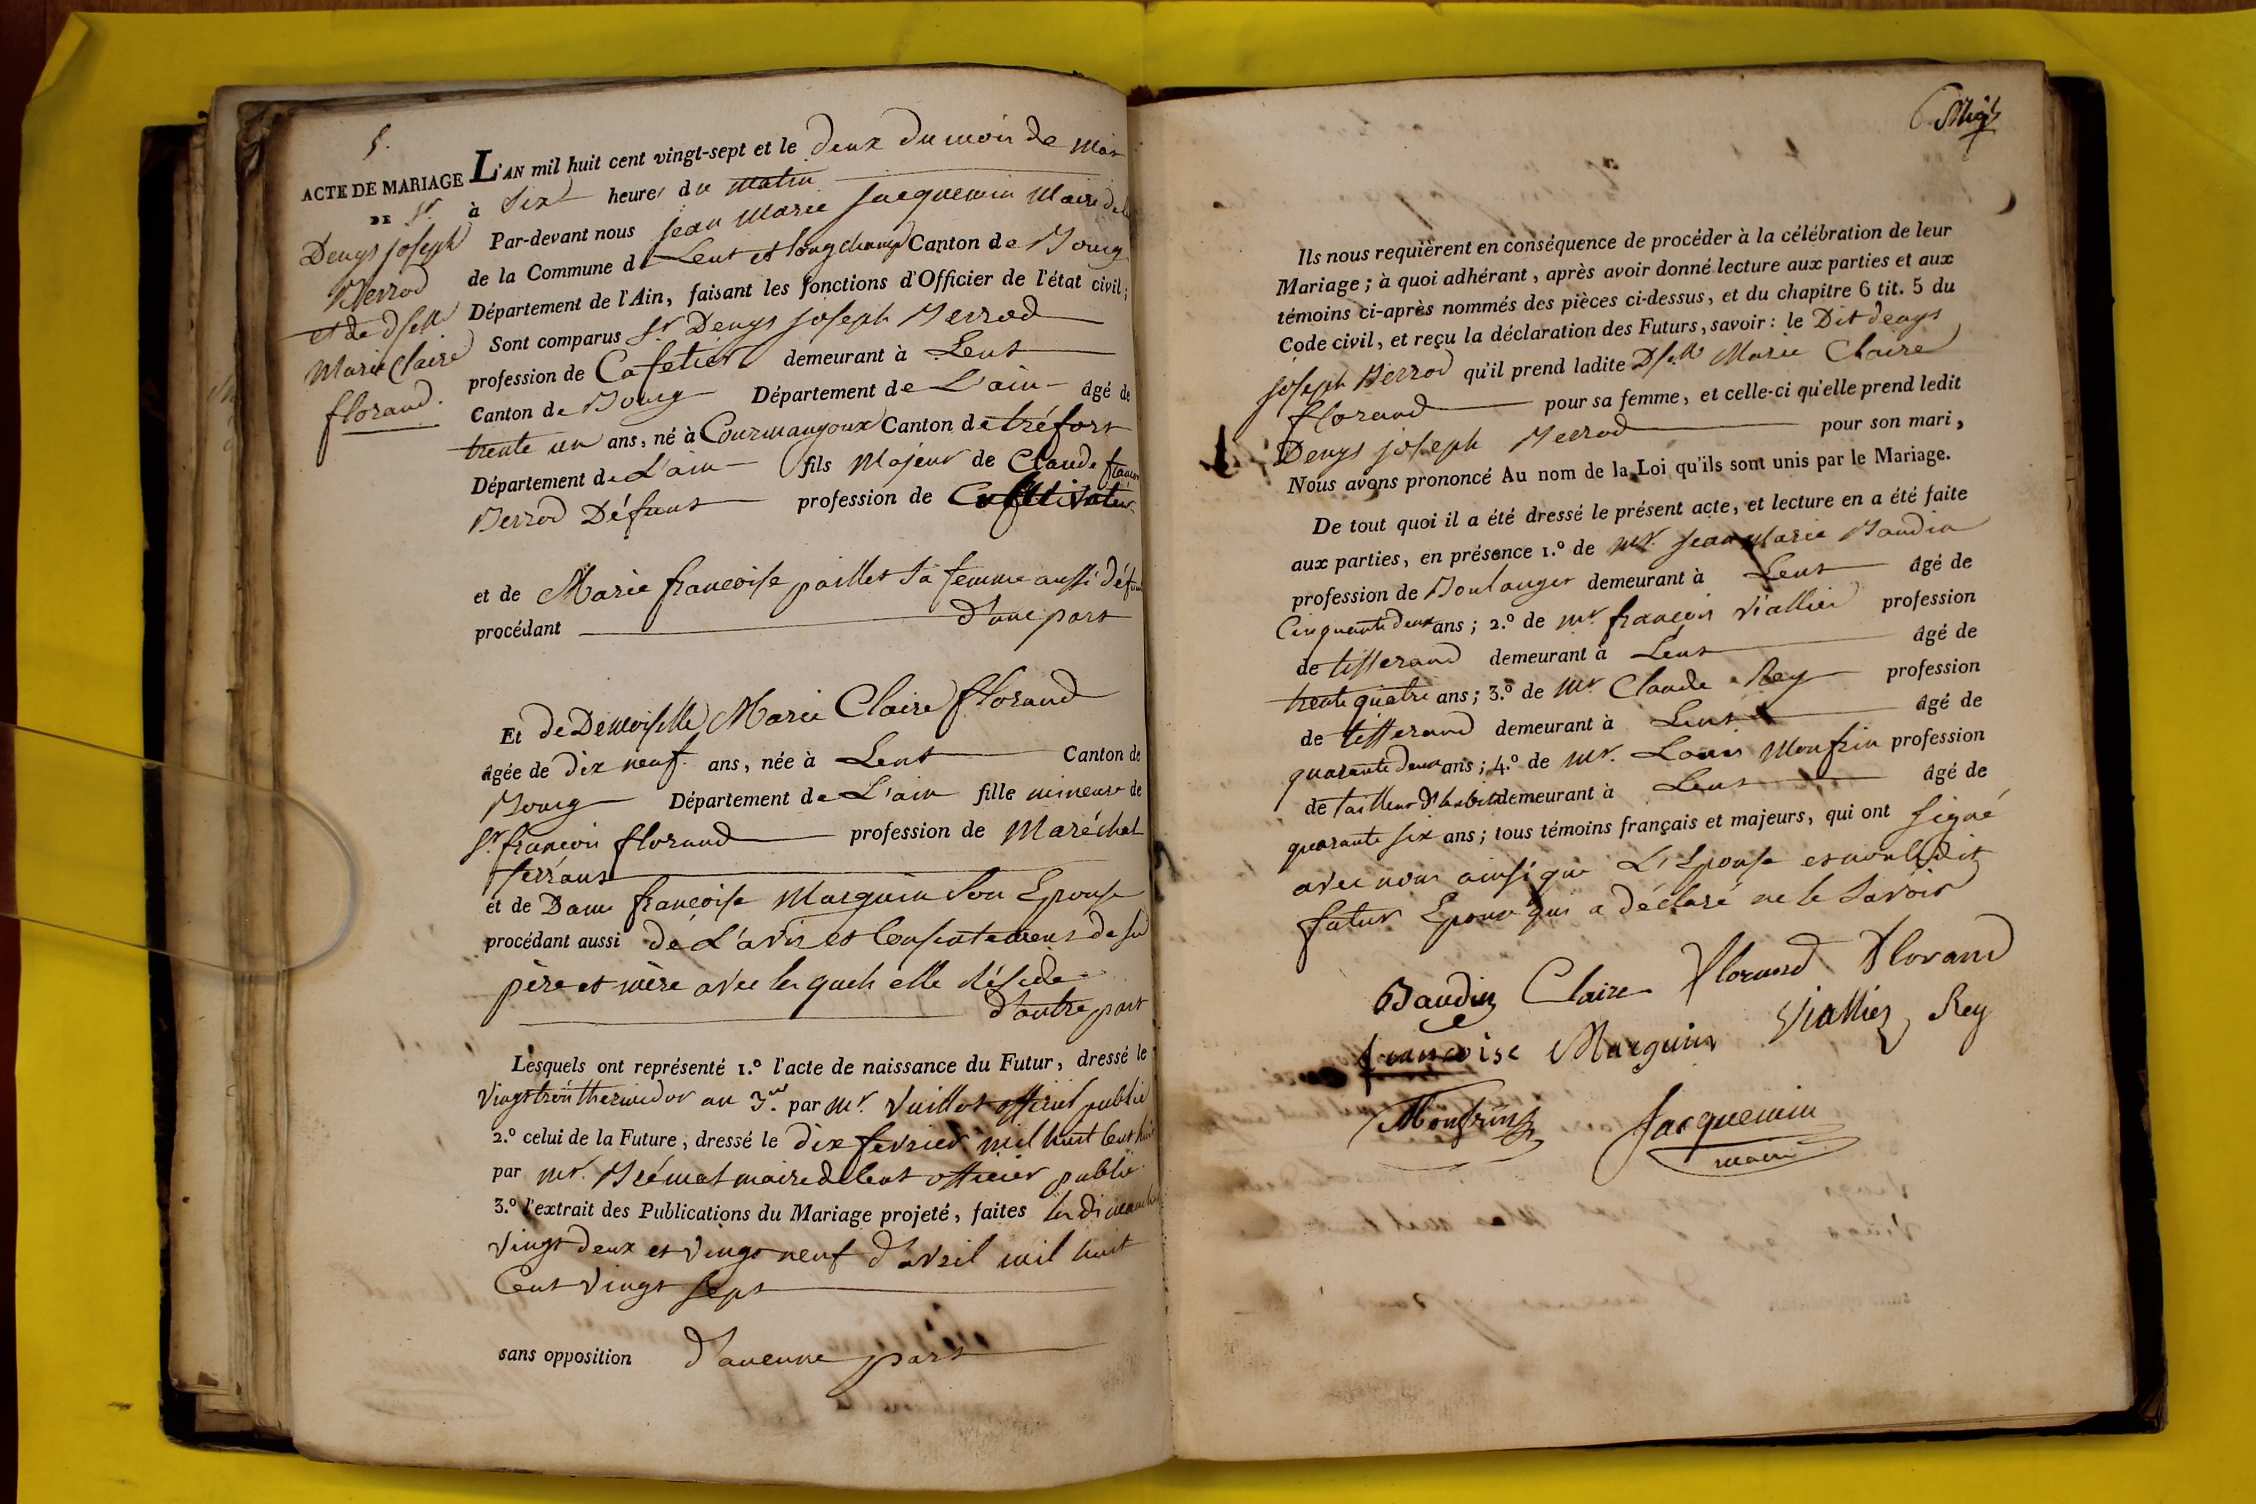 5.
ACTE DE MARIAGE
DE Sr.
Denys joseph
Berrod
et de Dselle
Marie Claire
florand.
L'AN mil huit cent vingt-sept et le deux du mois de Mai
à Six heures du matin
Par-devant nous jean Marie Jacquemin Maire de la
de la Commune de Lent et longchamp Canton de Bourg
Département de l'Ain, faisant les fonctions d'Officier de l'état civil;
Sont comparus Sr Denys joseph Berrod
profession de Cafetier demeurant à Lent
Canton de Bourg Département de L'ain âgé de
trente un ans, né à Courmangoux Canton de tréfort
Département de L'ain fils Majeur de Claude françois
Berrod Défunt profession de Cultivateur
et de Marie francoise paillet Sa femme aussi défunt
procédant d'une part
Et de Demoiselle Marie Claire florand
âgée de dix neuf ans, née à Lent Canton de
Bourg Département de L'ain fille mineure de
Sr. françois florand profession de Maréchal
ferrant
et de Dame francoise Marguin Son Epouse
procédant aussi de L'avis et Consentement de Sed
père et mère avec les quels elle réside
d'autre part
Lesquels ont représenté 1.º l'acte de naissance du Futur, dressé le
Vingt trois thermidor an 3.me par mr. Vuillot officier public
2.º celui de la Future, dressé le dix fevrier mil huit Cent huit
par mr. Brémat maire de lent officier public
3.º l'extrait des Publications du Mariage projeté, faites les dimanches
Vingt deux et Vingt neuf d'avril mil huit
Cent Vingt Sept
sans opposition d'aucune part
Ils nous requièrent en conséquence de procéder à la célébration de leur
Mariage; à quoi adhérant, après avoir donné lecture aux parties et aux
témoins ci-après nommés des pièces ci-dessus, et du chapitre 6 tit. 5 du
Code civil, et reçu la déclaration des Futurs, savoir: le Dit denys
joseph Berrod qu'il prend ladite Dselle Marie Claire
florand pour sa femme, et celle-ci qu'elle prend ledit
Denys joseph Berrod pour son mari,
Nous avons prononcé Au nom de la Loi qu'ils sont unis par le Mariage.
De tout quoi il a été dressé le présent acte, et lecture en a été faite
aux parties, en présence 1.º de mr. jean Marie Baudin
profession de Boulanger demeurant à Lent âgé de
Cinquante deux ans; 2.º de mr. françois Viallier profession
de tisserand demeurant à Lent âgé de
trente quatre ans; 3.º de mr Claude Rey profession
de tisserand demeurant à Lent âgé de
quarante deux ans; 4.º de mr. Louis Monfrin profession
de tailleur d'habits demeurant à Lent âgé de
quarante six ans; tous témoins français et majeurs, qui ont Signé
avec nous ainsi que L'Epouse et non ledit
futur Epoux qui a déclaré ne le Savoir
Baudin Claire florand Florand
francoise Marguin Viallier Rey
Monfrin Jacquemin
maire